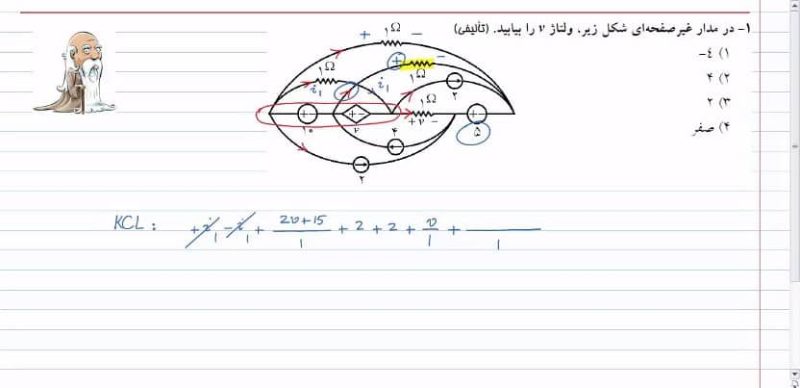 ۱- در مدار غیرصفحه‌ای شکل زیر، ولتاژ v را بیابید. (تألیفی)
۱) ٤-
۲) ۴
۳) ۲
۴) صفر
+ ۱Ω -
+ ۱Ω -
۱Ω
i₁
i₁
۲
۱Ω
+ v -
+ -
۱۰
+ -
v
۴
+ -
۵
۲
KCL : +i₁ - i₁ + (2v+15)/1 + 2 + 2 + v/1 + /1